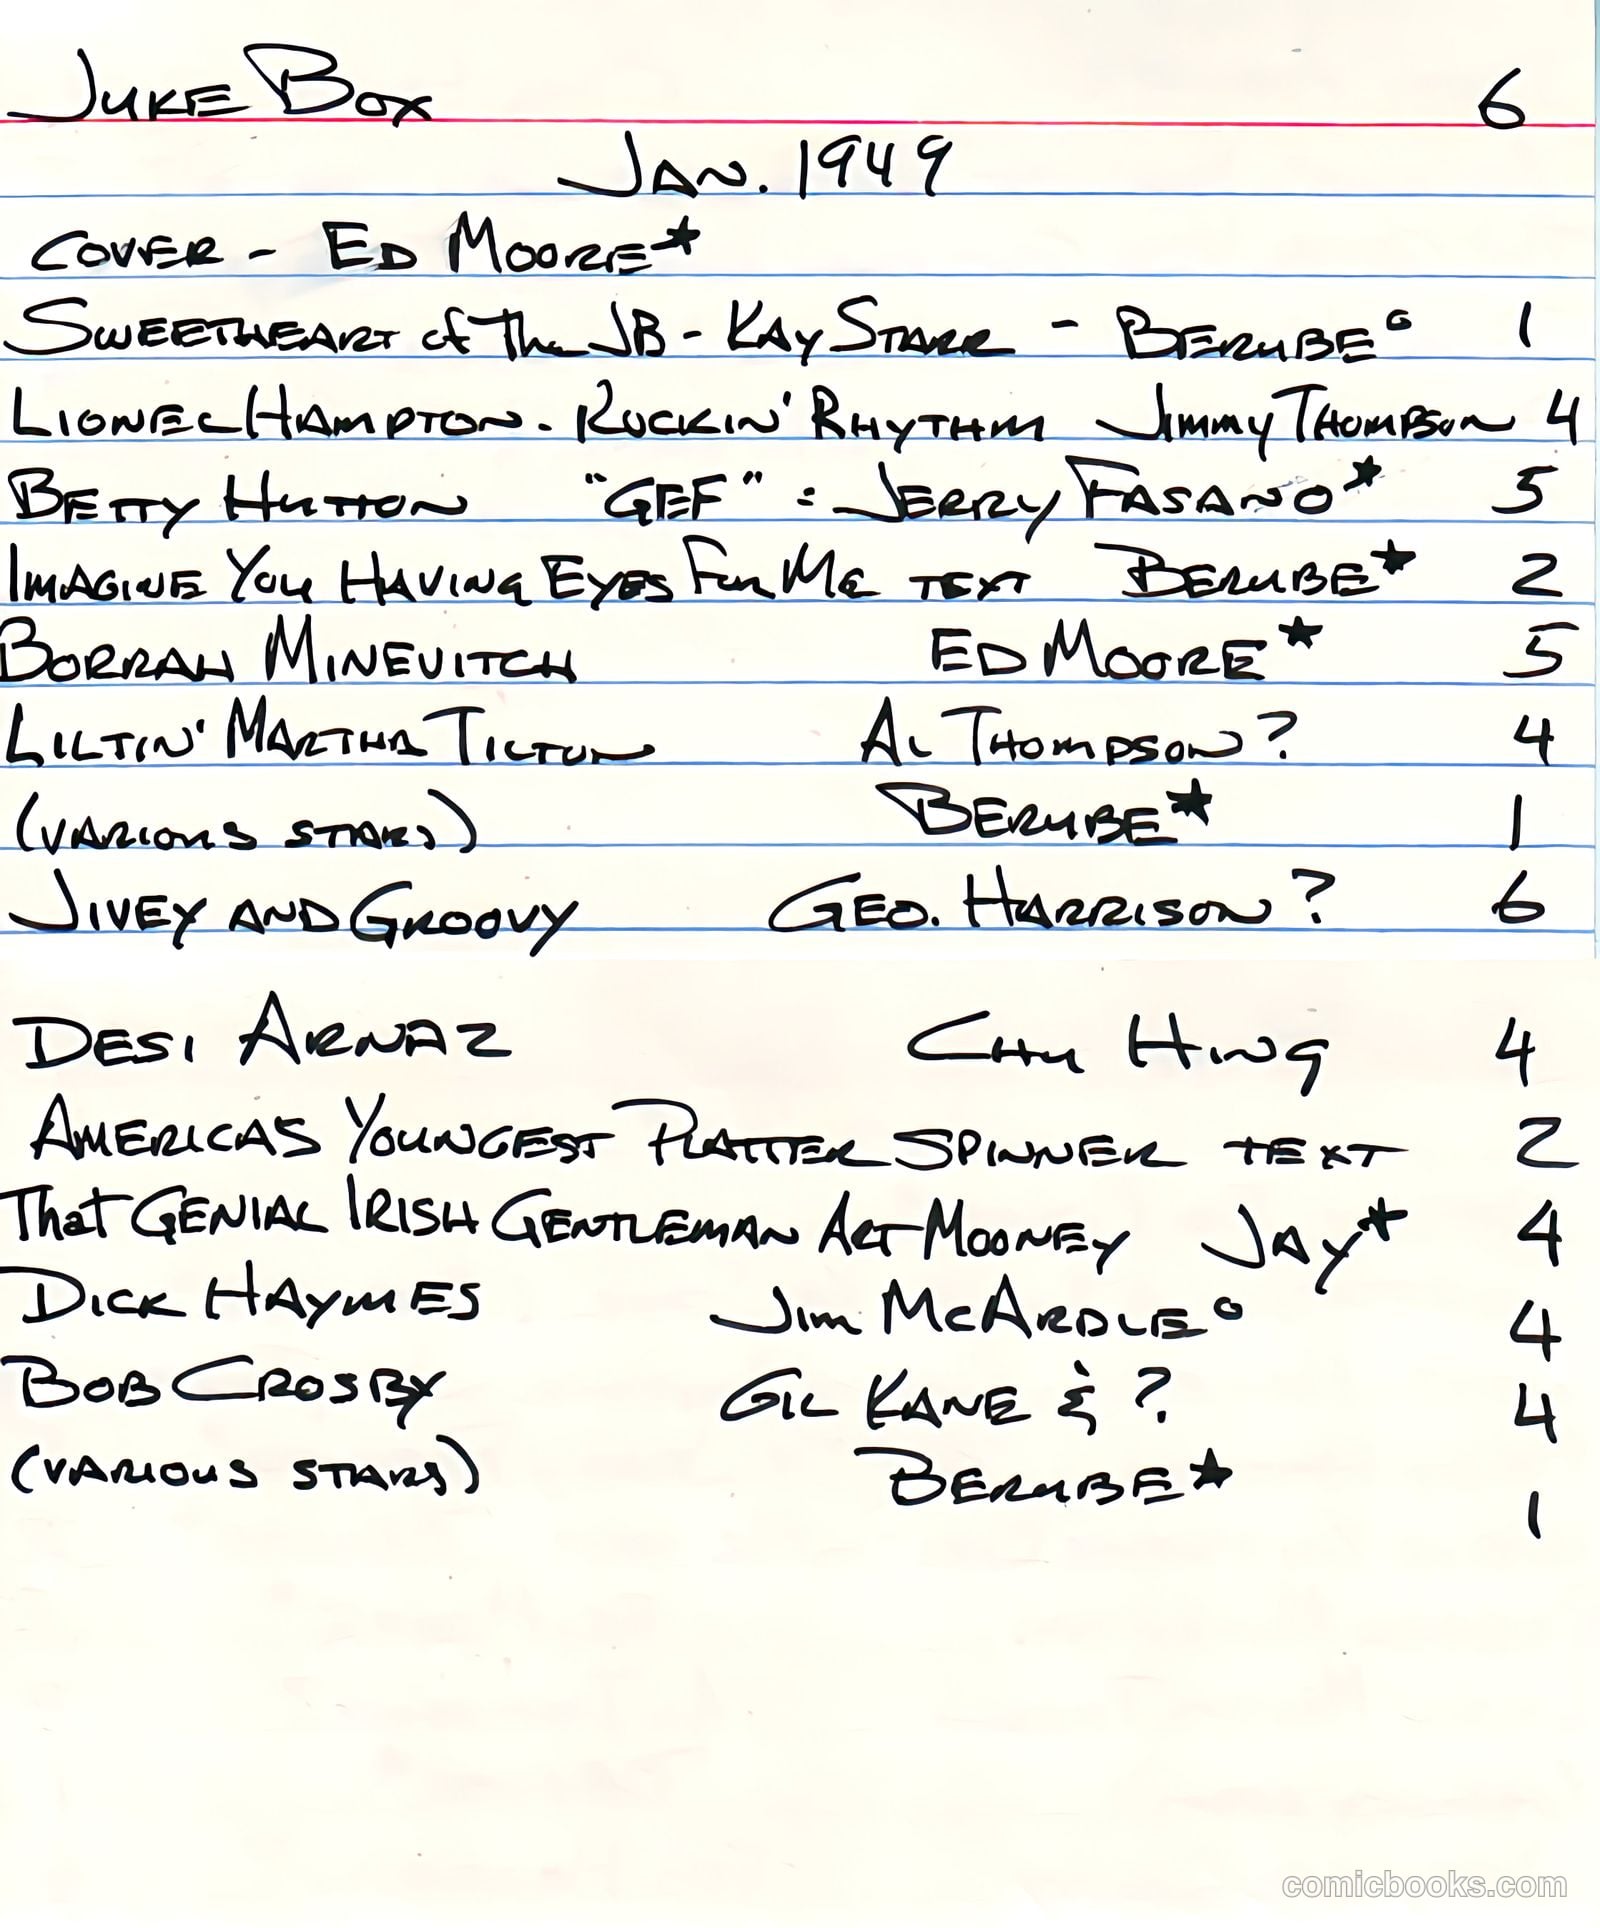 JUKE BOX 6
JAN. 1949
COVER - ED MOORE★
SWEETHEART of The JB - KAY STARR - BERUBE° 1
LIONEL HAMPTON - ROCKIN' RHYTHM JIMMY THOMPSON 4
BETTY HUTTON "GEF" = JERRY FASANO★ 5
IMAGINE YOU HAVING EYES FOR ME TEXT BERUBE★ 2
BORRAH MINEVITCH ED MOORE★ 5
LILTIN' MARTHA TILTON AL THOMPSON? 4
(VARIOUS STARS) BERUBE★ 1
JIVEY AND GROOVY GEO. HARRISON? 6
DESI ARNAZ CHU HING 4
AMERICAS YOUNGEST PLATTER SPINNER TEXT 2
That GENIAL IRISH GENTLEMAN ART MOONEY JAY★ 4
DICK HAYMES JIM McARDLE° 4
BOB CROSBY GIL KANE & ? 4
(VARIOUS STARS) BERUBE★ 1
comicbooks.com